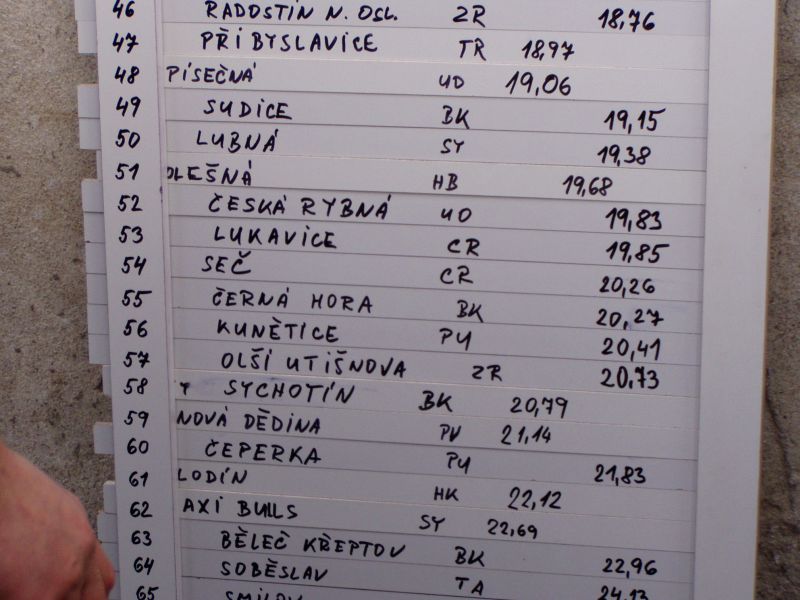 46 RADOSTÍN N. OSL. ZR 18,76
47 PŘIBYSLAVICE TR 18,97
48 PÍSEČNÁ UO 19,06
49 SUDICE BK 19,15
50 LUBNÁ SY 19,38
51 OLEŠNÁ HB 19,68
52 ČESKÁ RYBNÁ UO 19,83
53 LUKAVICE CR 19,85
54 SEČ CR 20,26
55 ČERNÁ HORA BK 20,27
56 KUNĚTICE PU 20,41
57 OLŠÍ UTIŠNOVA ZR 20,73
58 SYCHOTÍN BK 20,79
59 NOVÁ DĚDINA PV 21,14
60 ČEPERKA PU 21,83
61 LODÍN HK 22,12
62 AXI BULLS SY 22,69
63 BĚLEČ KŘEPTOV BK 22,96
64 SOBĚSLAV TA 24,13
65